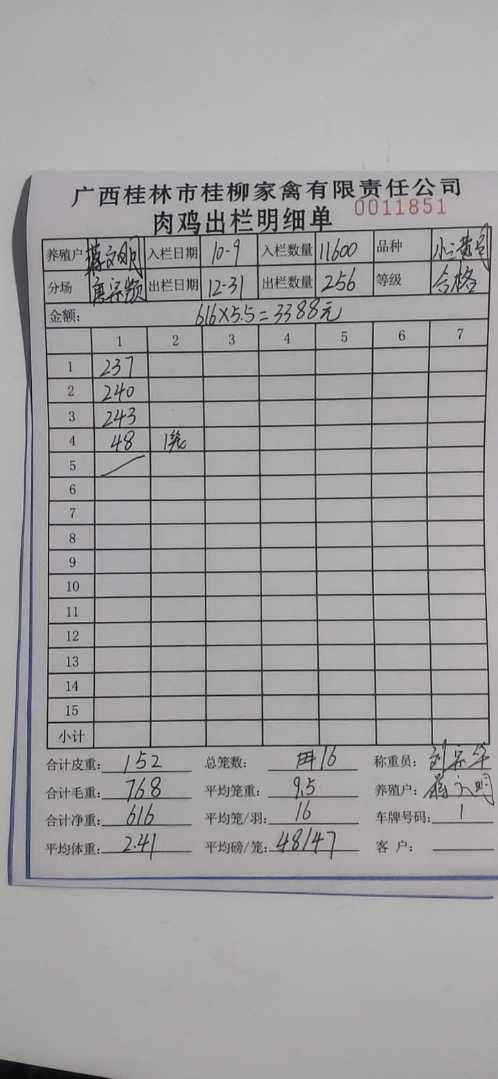 广西桂林市桂柳家禽有限责任公司
肉鸡出栏明细单 0011851
养殖户 蒋文明 入栏日期 10-9 入栏数量 11600 品种
分场 出栏日期 12-31 出栏数量 256 等级 合格
金额： 616×5.5=3388元
1 2 3 4 5 6 7
1 237
2 240
3 243
4 48 1笼
5
6
7
8
9
10
11
12
13
14
15
小计
合计皮重： 152 总笼数： 16 称重员：
合计毛重： 768 平均笼重： 9.5 养殖户： 蒋文明
合计净重： 616 平均笼/羽： 16 车牌号码： 1
平均体重： 2.41 平均磅/笼： 48/47 客 户：